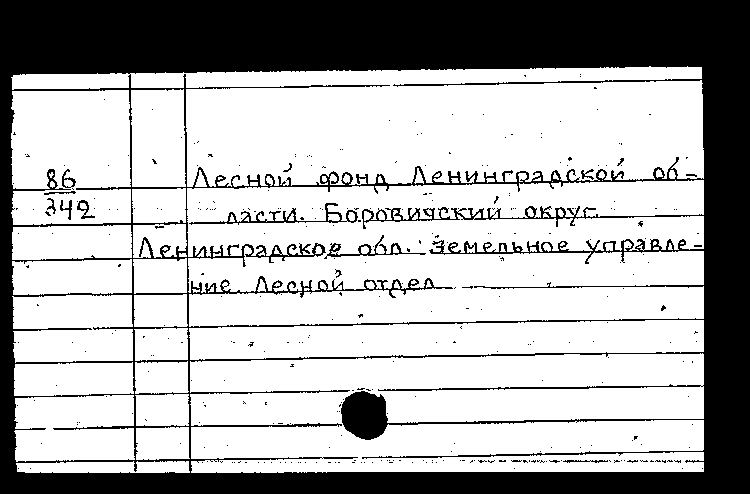 86 Лесной фонд Ленинградской об-
342 ласти. Боровичский округ.
Ленинградское обл. земельное управле-
ние. Лесной отдел